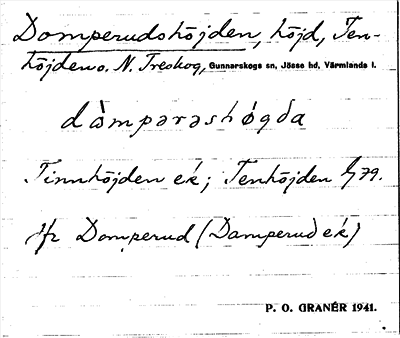 Domperudshöjden, höjd, Ten-
höjden o. N. Treskog, Gunnarskogs sn, Jösse hd, Värmlands l.
dὰmpərəshǿgda
Tinnhöjden ek; Tenhöjden G79.
Jfr Domperud (Damperud ek)
P. O. GRANÉR 1941.